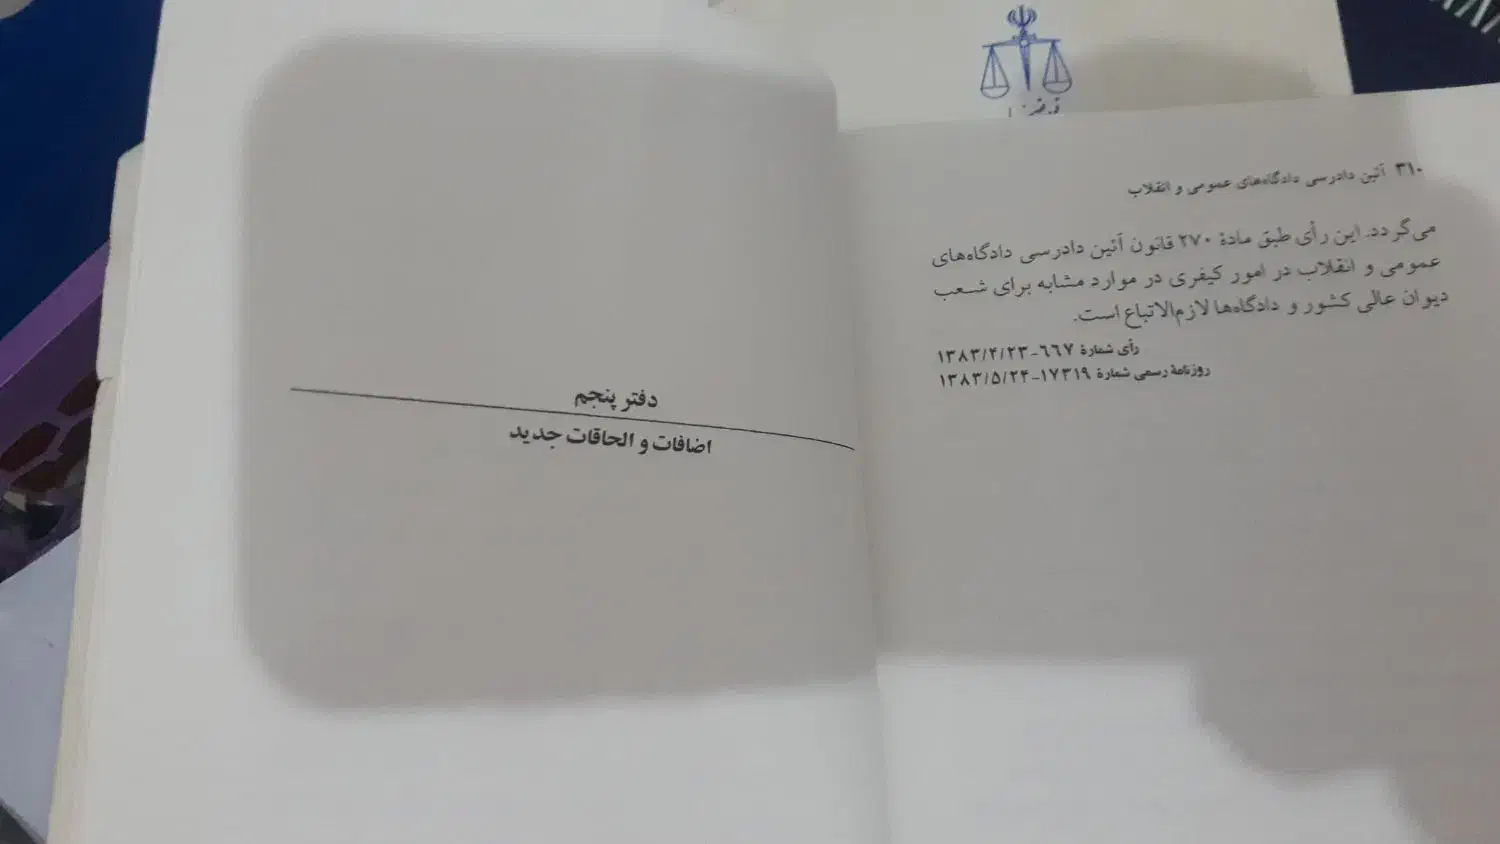 ۳۱۰ آئین دادرسی دادگاه‌های عمومی و انقلاب
می‌گردد. این رأی طبق مادهٔ ۲۷۰ قانون آئین دادرسی دادگاه‌های
عمومی و انقلاب در امور کیفری در موارد مشابه برای شعب
دیوان عالی کشور و دادگاه‌ها لازم‌الاتباع است.
رأی شمارهٔ ۶۶۷-۱۳۸۳/۴/۲۳
روزنامهٔ رسمی شمارهٔ ۱۷۳۱۹-۱۳۸۳/۵/۲۴
دفتر پنجم
اضافات و الحاقات جدید